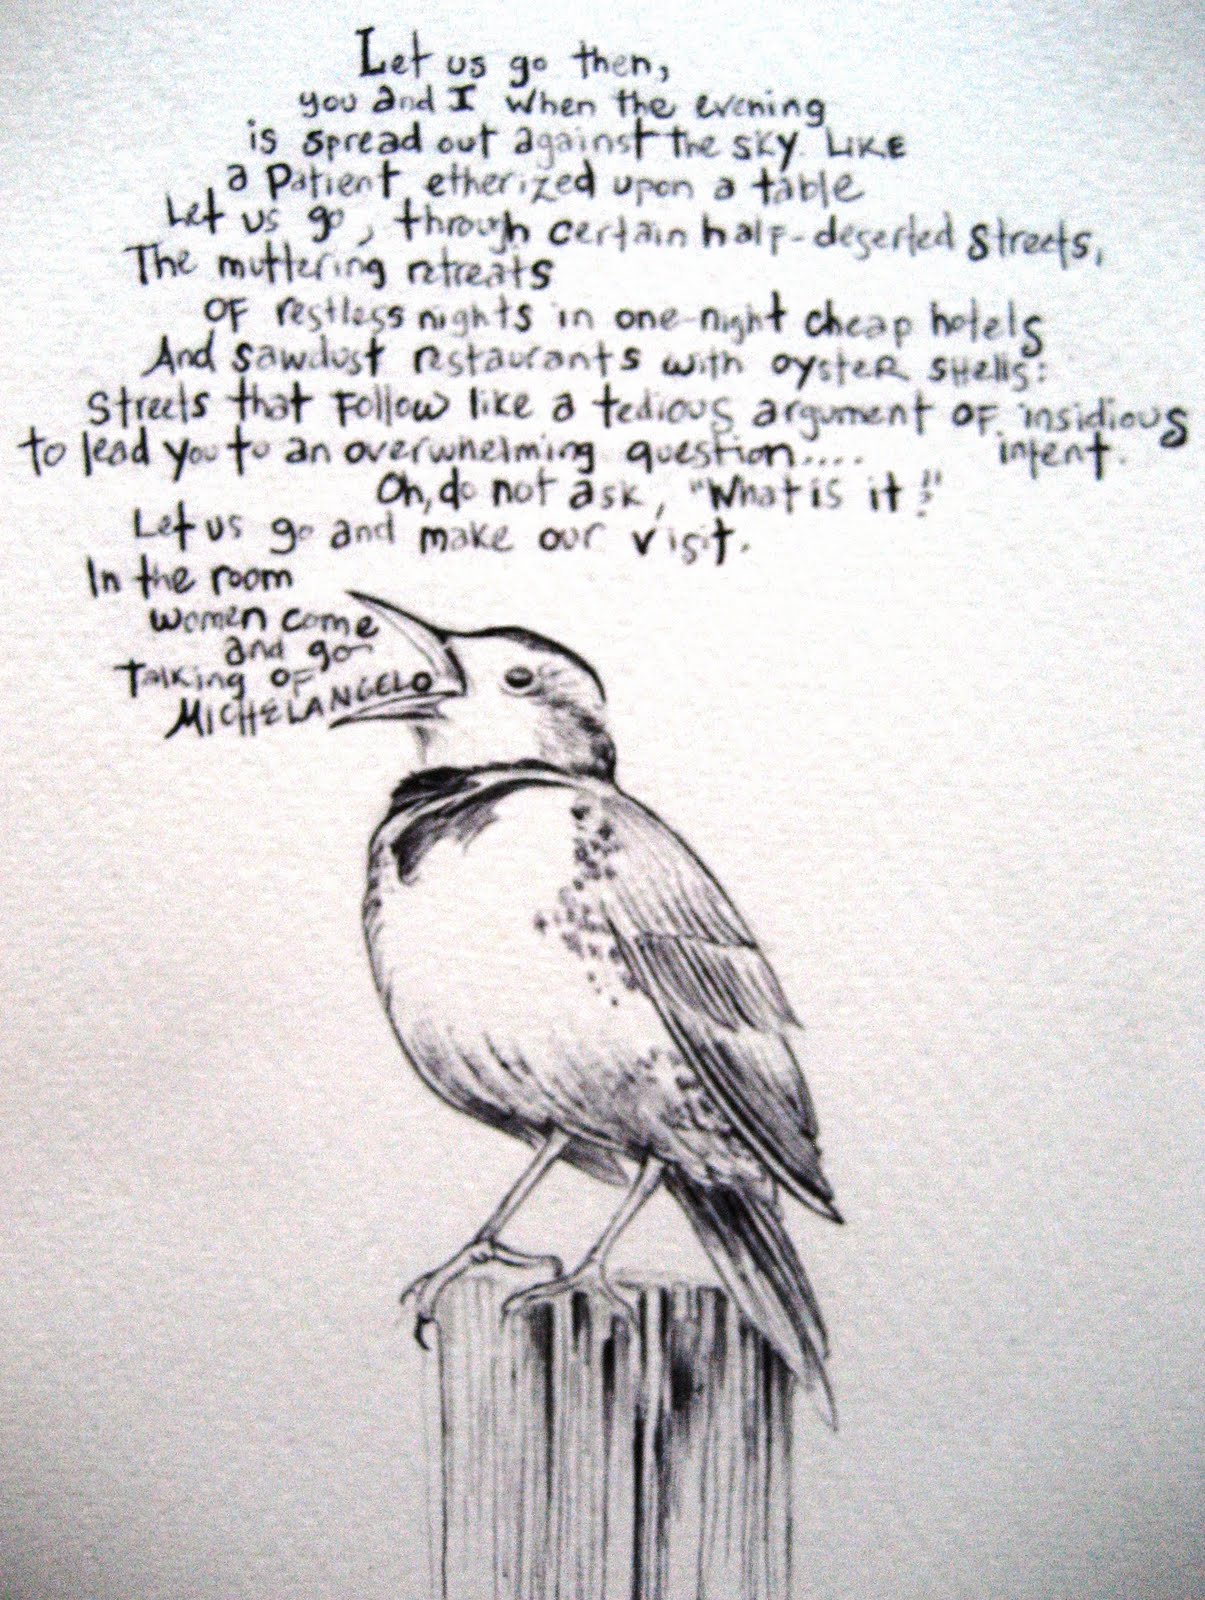 Let us go then,
you and I when the evening
is spread out against the sky. Like
a Patient etherized upon a table
Let us go, through certain half-deserted streets,
The muttering retreats
OF restless nights in one-night cheap hotels
And sawdust restaurants with oyster shells:
Streets that Follow like a tedious argument OF insidious
intent.
to lead you to an overwhelming question....
Oh, do not ask, "What is it?"
Let us go and make our visit.
In the room
women come
and go
Talking OF
MICHELANGELO